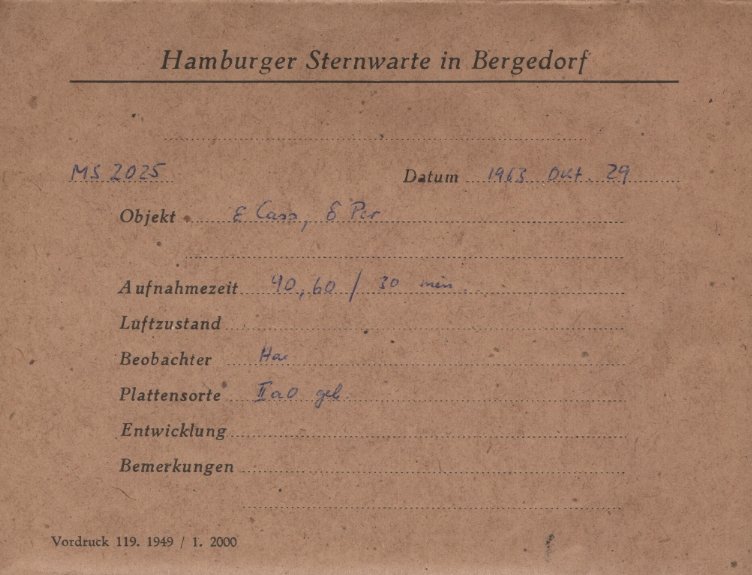 Hamburger Sternwarte in Bergedorf
MS 2025 Datum 1963 Okt. 29
Objekt ε Cass, δ Per
Aufnahmezeit 90, 60 / 30 min
Luftzustand
Beobachter Ha
Plattensorte IIaO geb
Entwicklung
Bemerkungen
Vordruck 119. 1949 / 1. 2000